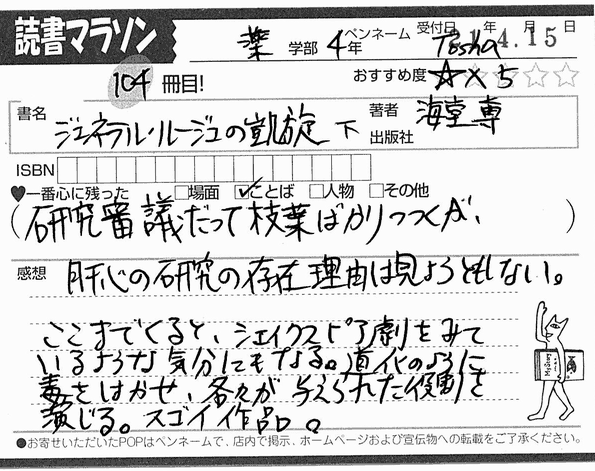 読書マラソン 薬 学部 4年 ペンネーム Tosha 受付日 年 月 日 1 4.15
104 冊目! おすすめ度 ☆×5 ☆☆
書名 ジェネラル・ルージュの凱旋 下 著者 海堂 尊
出版社
ISBN
♥一番心に残った □場面 ☑ことば □人物 □その他
(研究審議だって枝葉ばかりつつくが、)
感想 肝心の研究の存在理由は見ようともしない。
ここまでくると、シェイクスピア劇をみて
いるような気分にもなる。道化のように
毒をはかせ、各々が与えられた役割を
演じる。スゴイ作品。
●お寄せいただいたPOPはペンネームで、店内で掲示、ホームページおよび宣伝物への転載をご了承ください。